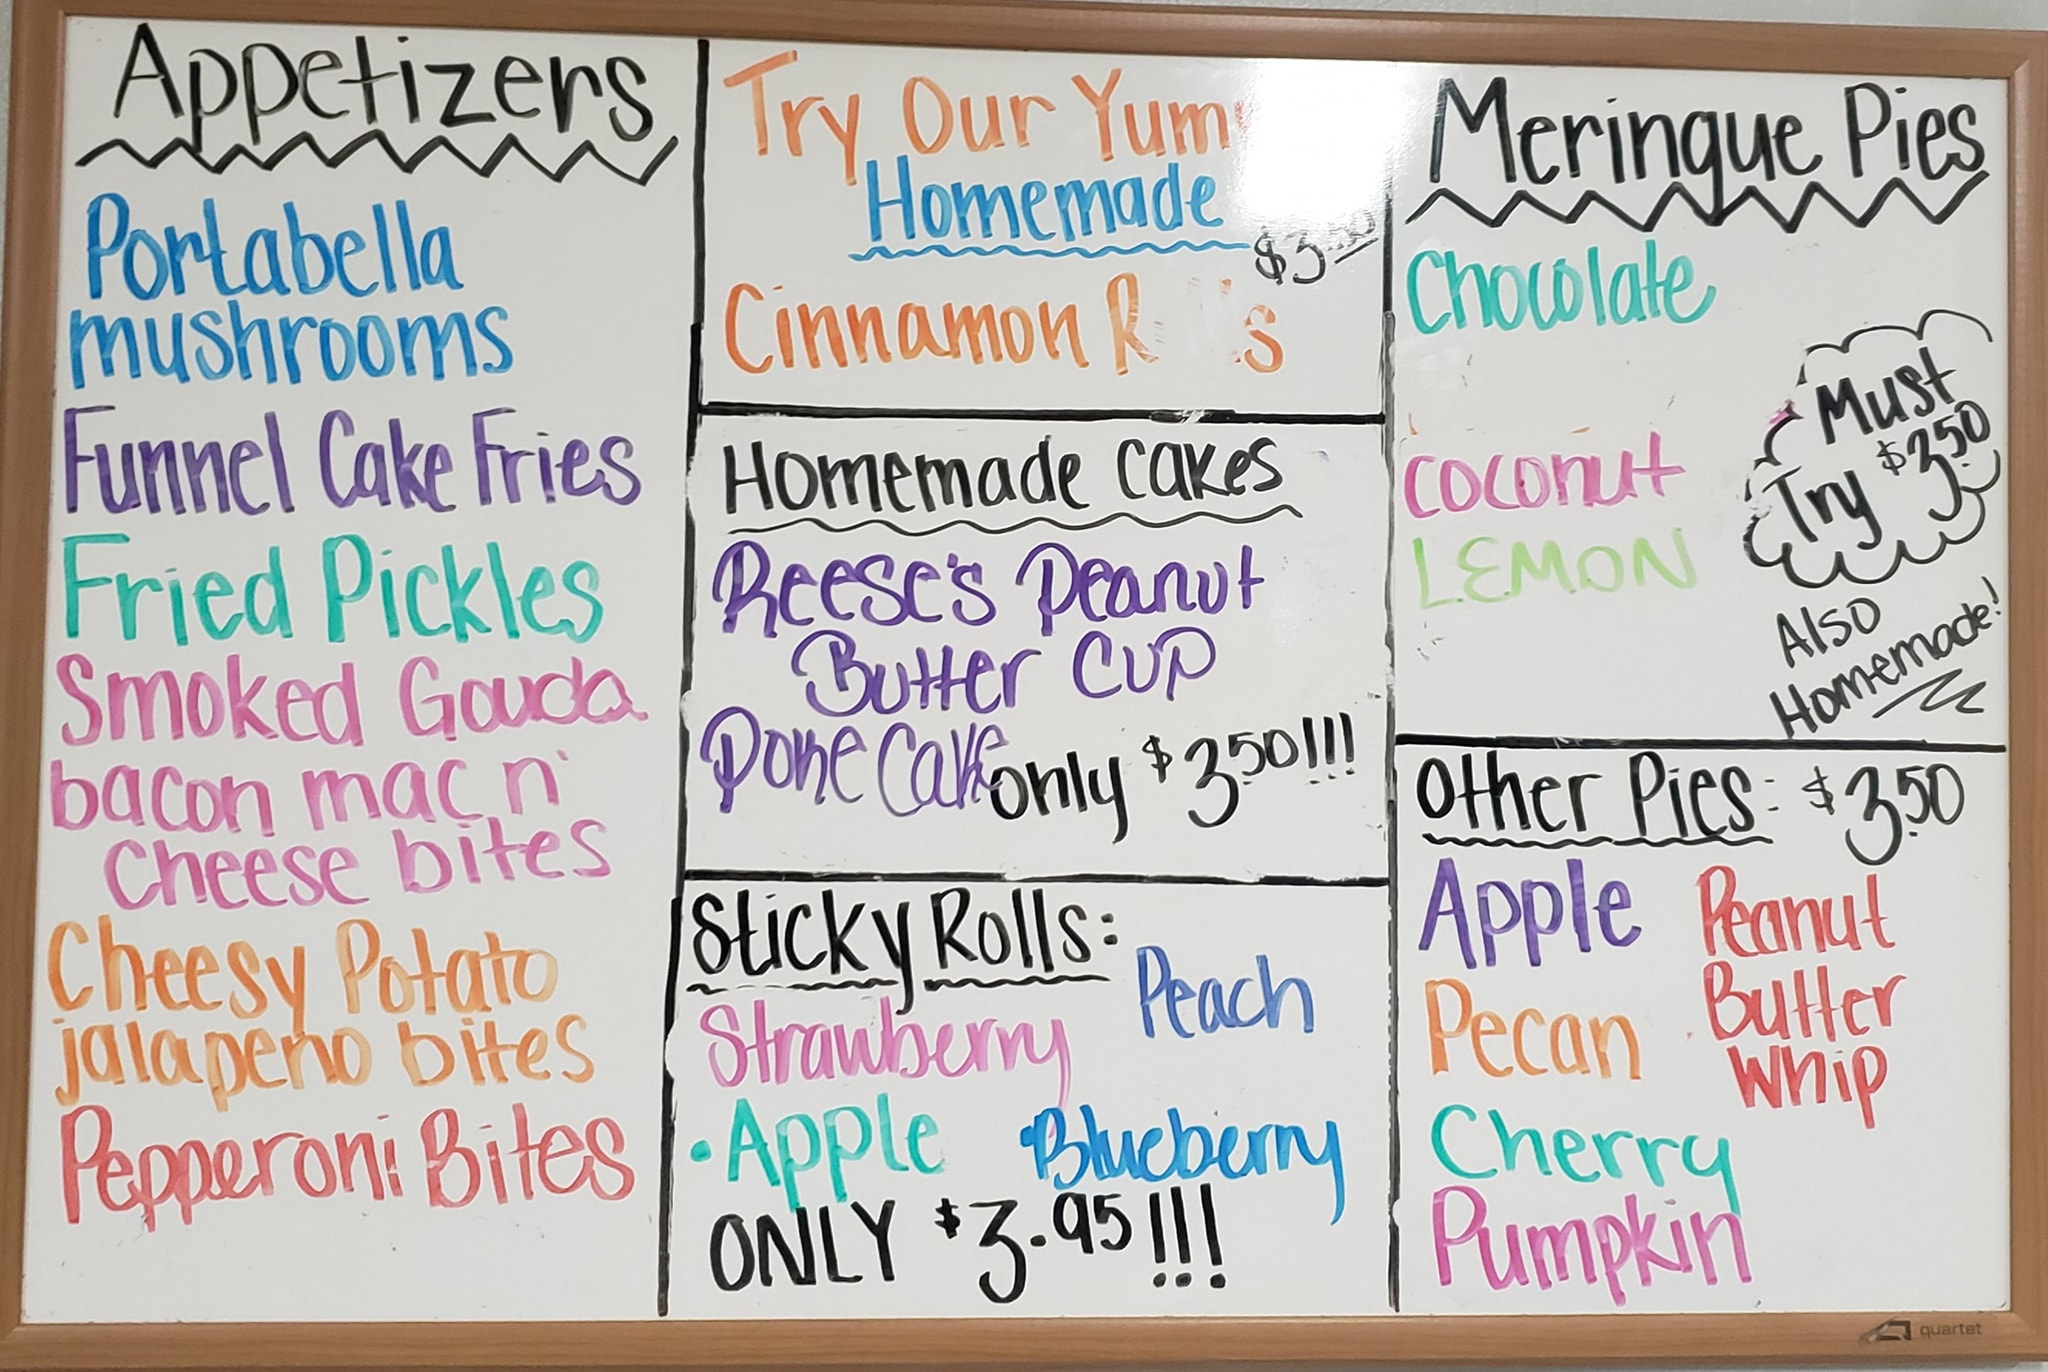 Appetizers
Portabella
mushrooms
Funnel Cake Fries
Fried Pickles
Smoked Gouda
bacon mac n'
cheese bites
Cheesy Potato
jalapeno bites
Pepperoni Bites
Try Our
Homemade
$3.50
Cinnamon
Homemade cakes
Reese's Peanut
Butter Cup
Poke Cake only $3.50!!!
Sticky Rolls:
Strawberry Peach
• Apple • Blueberry
ONLY $3.95!!!
Meringue Pies
Chocolate
coconut
LEMON
Must
Try $3.50
Also
Homemade!
Other Pies: $3.50
Apple
Pecan
Cherry
Pumpkin
Peanut
Butter
Whip
quartet